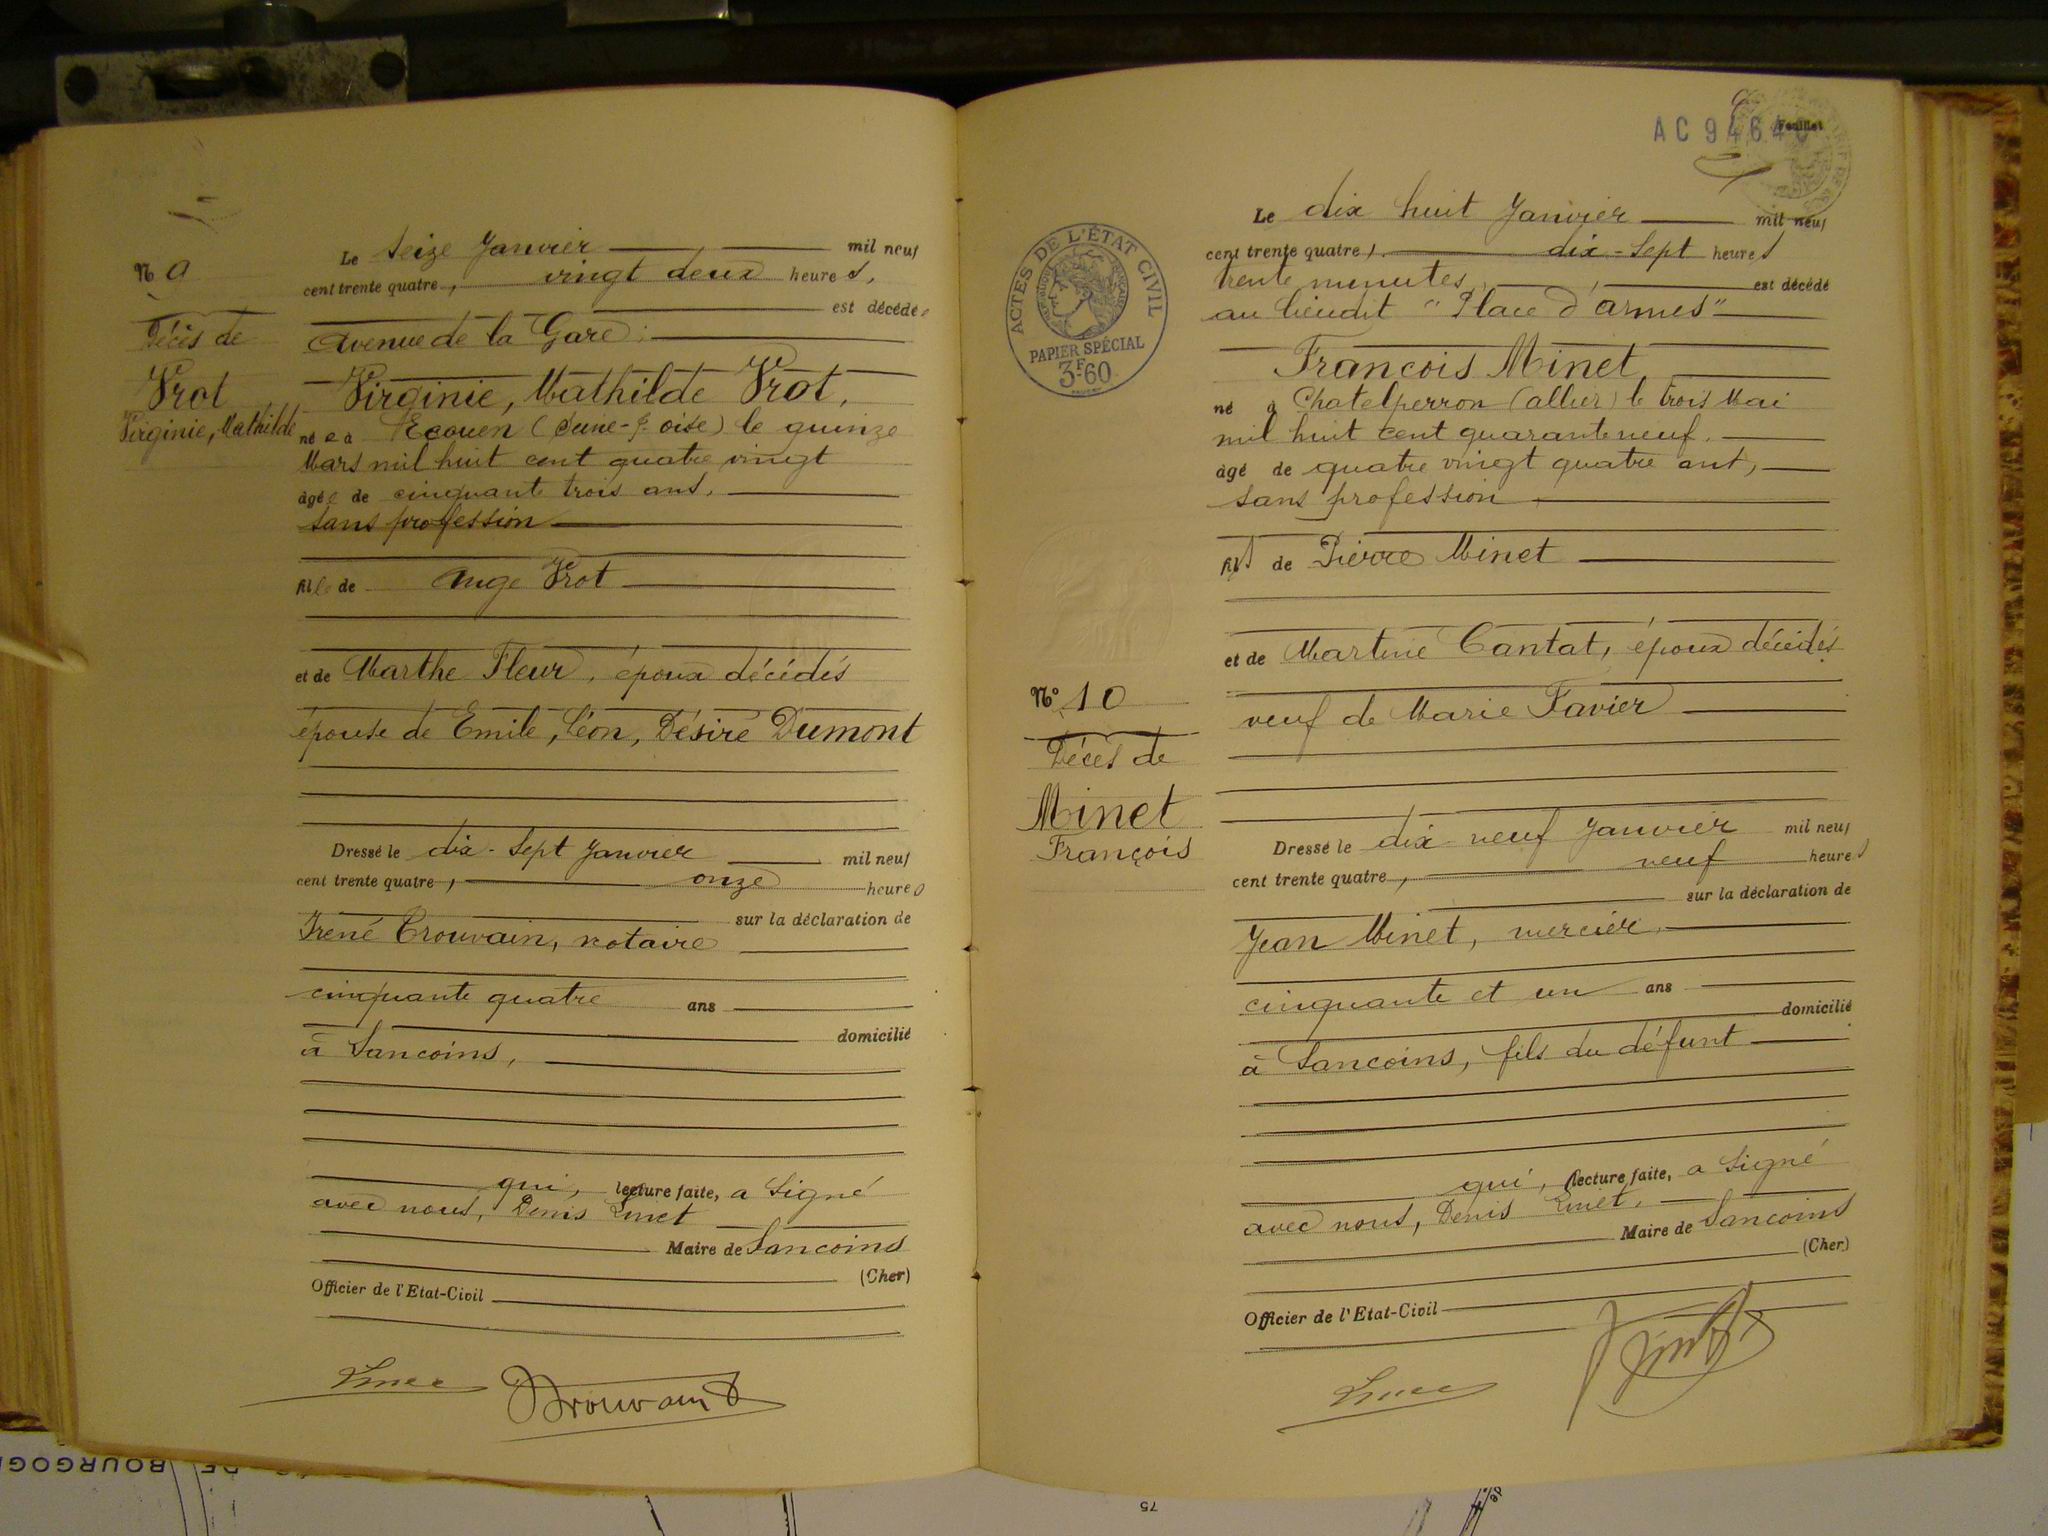 N 9
Décès de
Vrot
Virginie, Mathilde
Le seize Janvier mil neuf
cent trente quatre, vingt deux heures,
est décédée
Avenue de la Gare,
Virginie, Mathilde Vrot,
née à Ecouen (Seine-&-oise) le quinze
Mars mil huit cent quatre vingt
âgée de cinquante trois ans,
sans profession
fille de Ange Vrot
et de Marthe Fleur, époux décédés
épouse de Emile, Léon, Désiré Dumont
Dressé le dix-sept Janvier mil neuf
cent trente quatre, onze heures
sur la déclaration de
Irené Trouvain, notaire
cinquante quatre ans
domicilié
à Sancoins,
qui, lecture faite, a signé
avec nous, Denis
Maire de Sancoins
(Cher)
Officier de l'Etat-Civil
Trouvain
AC 9464
Feuillet
ACTES DE L'ÉTAT CIVIL
PAPIER SPÉCIAL
3F60
N° 10
Décès de
Minet
François
Le dix huit Janvier mil neuf
cent trente quatre, dix-sept heures
trente minutes, est décédé
au lieudit "Place d'armes"
François Minet
né à Chatelperron (allier) le trois Mai
mil huit cent quarante neuf,
âgé de quatre vingt quatre ans,
sans profession
fils de Pierre Minet
et de Martine Cantat, époux décédés
veuf de Marie Favier
Dressé le dix neuf Janvier mil neuf
cent trente quatre, neuf heures
sur la déclaration de
Jean Minet, mercier,
cinquante et un ans
domicilié
à Sancoins, fils du défunt
qui, lecture faite, a signé
avec nous, Denis
Maire de Sancoins
(Cher)
Officier de l'Etat-Civil
75